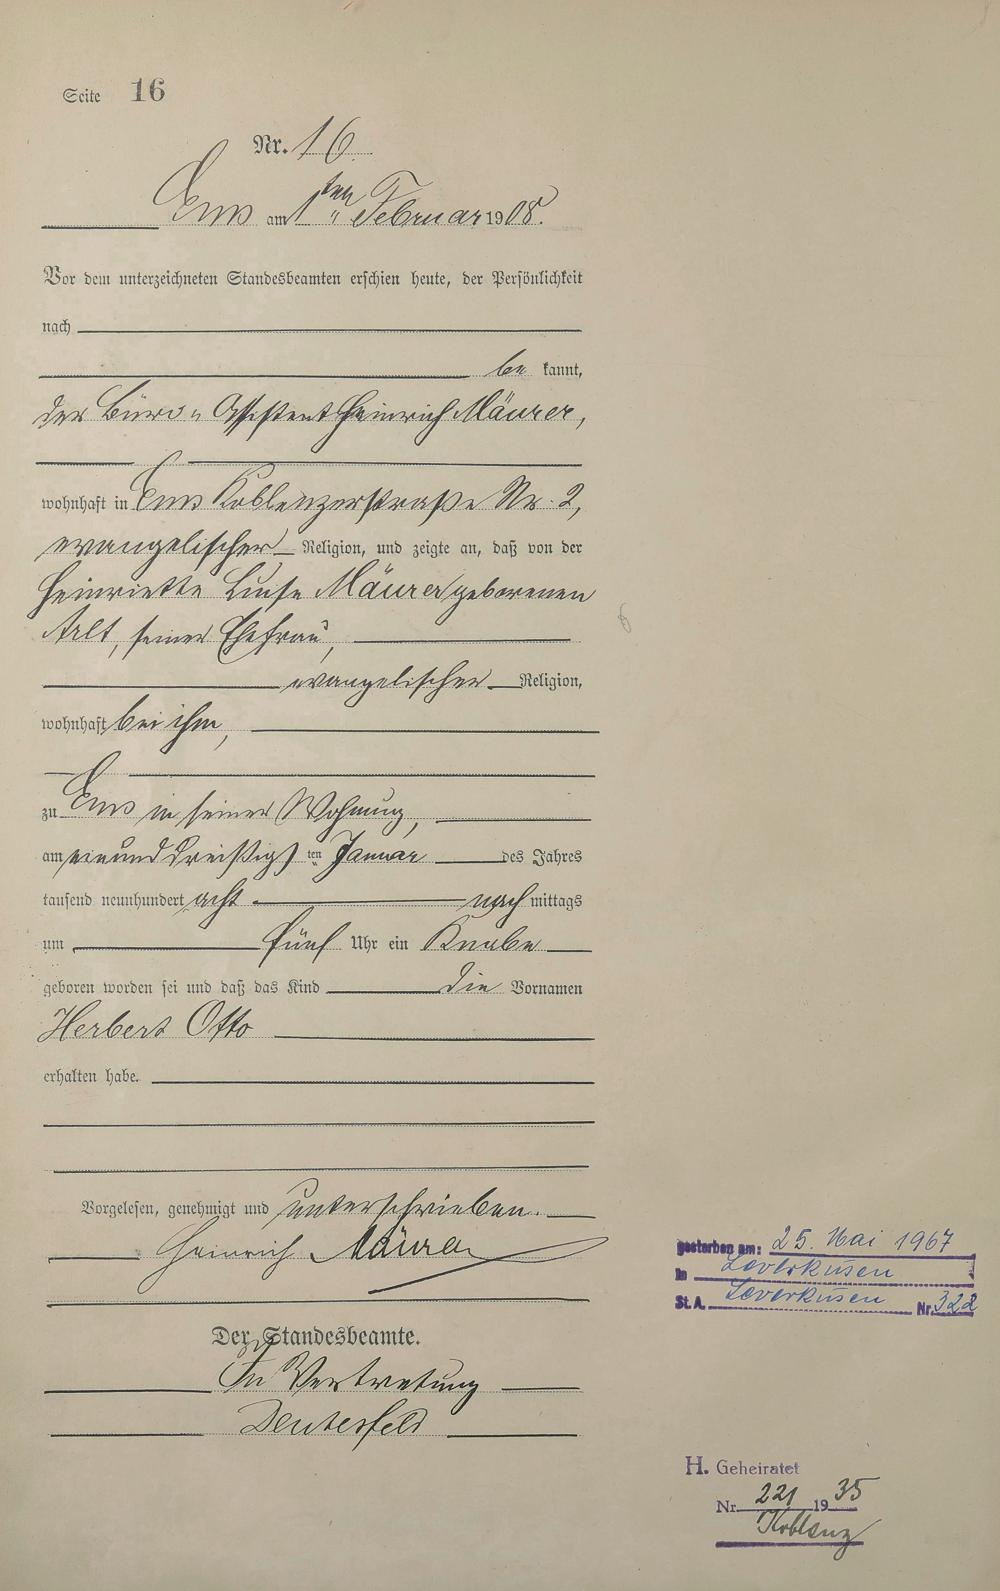 Seite 16
Nr. 16.
Ems am 1ten Februar 1908.
Vor dem unterzeichneten Standesbeamten erschien heute, der Persönlichkeit
nach
be kannt,
der Büro-Assistent Heinrich Mäurer,
wohnhaft in Ems Koblenzerstraße Nr. 2,
evangelischer Religion, und zeigte an, daß von der
Heinriette Luise Mäurer geborenen
Arlt, seiner Ehefrau,
evangelischer Religion,
wohnhaft bei ihm,
zu Ems in seiner Wohnung,
am einunddreißig ten Januar des Jahres
tausend neunhundert acht nach mittags
um fünf Uhr ein Knabe
geboren worden sei und daß das Kind die Vornamen
Herbert Otto
erhalten habe.
Vorgelesen, genehmigt und unterschrieben.
Heinrich Mäurer
Der Standesbeamte.
In Vertretung
gestorben am: 25. Mai 1967
in Leverkusen
St.A. Leverkusen Nr. 322
H. Geheiratet
Nr. 221 1935
Koblenz